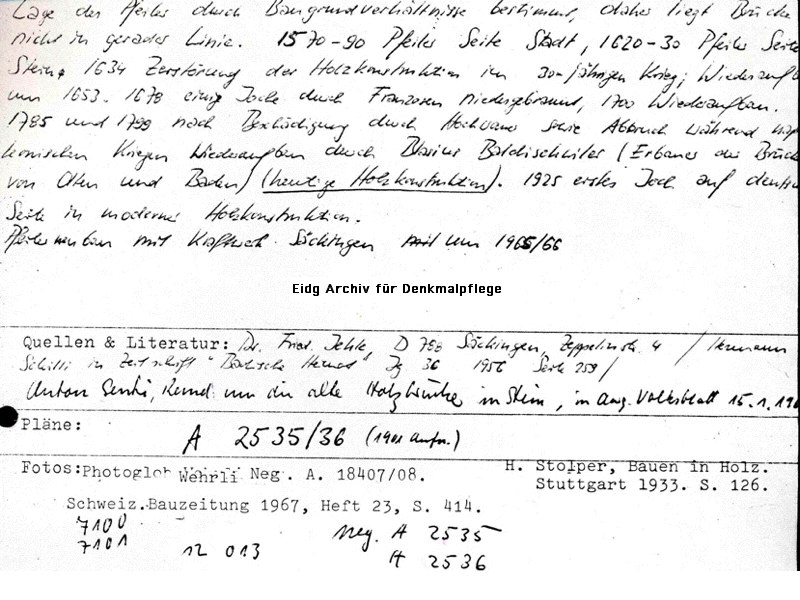 Lage der Pfeiler durch Baugrundverhältnisse bestimmt, daher liegt Brücke
nicht in gerader Linie. 1570-90 Pfeiler Seite Stadt, 1620-30 Pfeiler Seite
Stein, 1634 Zerstörung der Holzkonstruktion im 30-jährigen Krieg; Wiederaufb
um 1653. 1678 einige Joche durch Franzosen niedergebrannt, 1700 Wiederaufbau.
1785 und 1799 nach Beschädigung durch Hochwasser sowie Abbruch während nap
leonischen Kriegen Wiederaufbau durch Blasius Baldischwiler (Erbauer der Brücke
von Olten und Baden) (heutige Holzkonstruktion). 1925 erstes Joch auf deutsch
Seite in moderner Holzkonstruktion.
Pfeilerneubau mit Kraftwerk Säckingen um 1965/66
Eidg Archiv für Denkmalpflege
Quellen & Literatur: Dr. Fried. Jehle D 788 Säckingen, Zeppelinstr. 4 / Hermann
Schilli in Zeitschrift "Badische Heimat" Jg 36 1956 Seite 259/
Anton Senti, die alte Holzbrücke in Stein, in Aarg. Volksblatt 15.1.196
Pläne:
A 2535/36 (1901 aufn.)
Fotos: Photoglob Wehrli Neg. A. 18407/08.
H. Stolper, Bauen in Holz.
Stuttgart 1933. S. 126.
Schweiz.Bauzeitung 1967, Heft 23, S. 414.
7100
7101
12 013
Neg. A 2535
A 2536